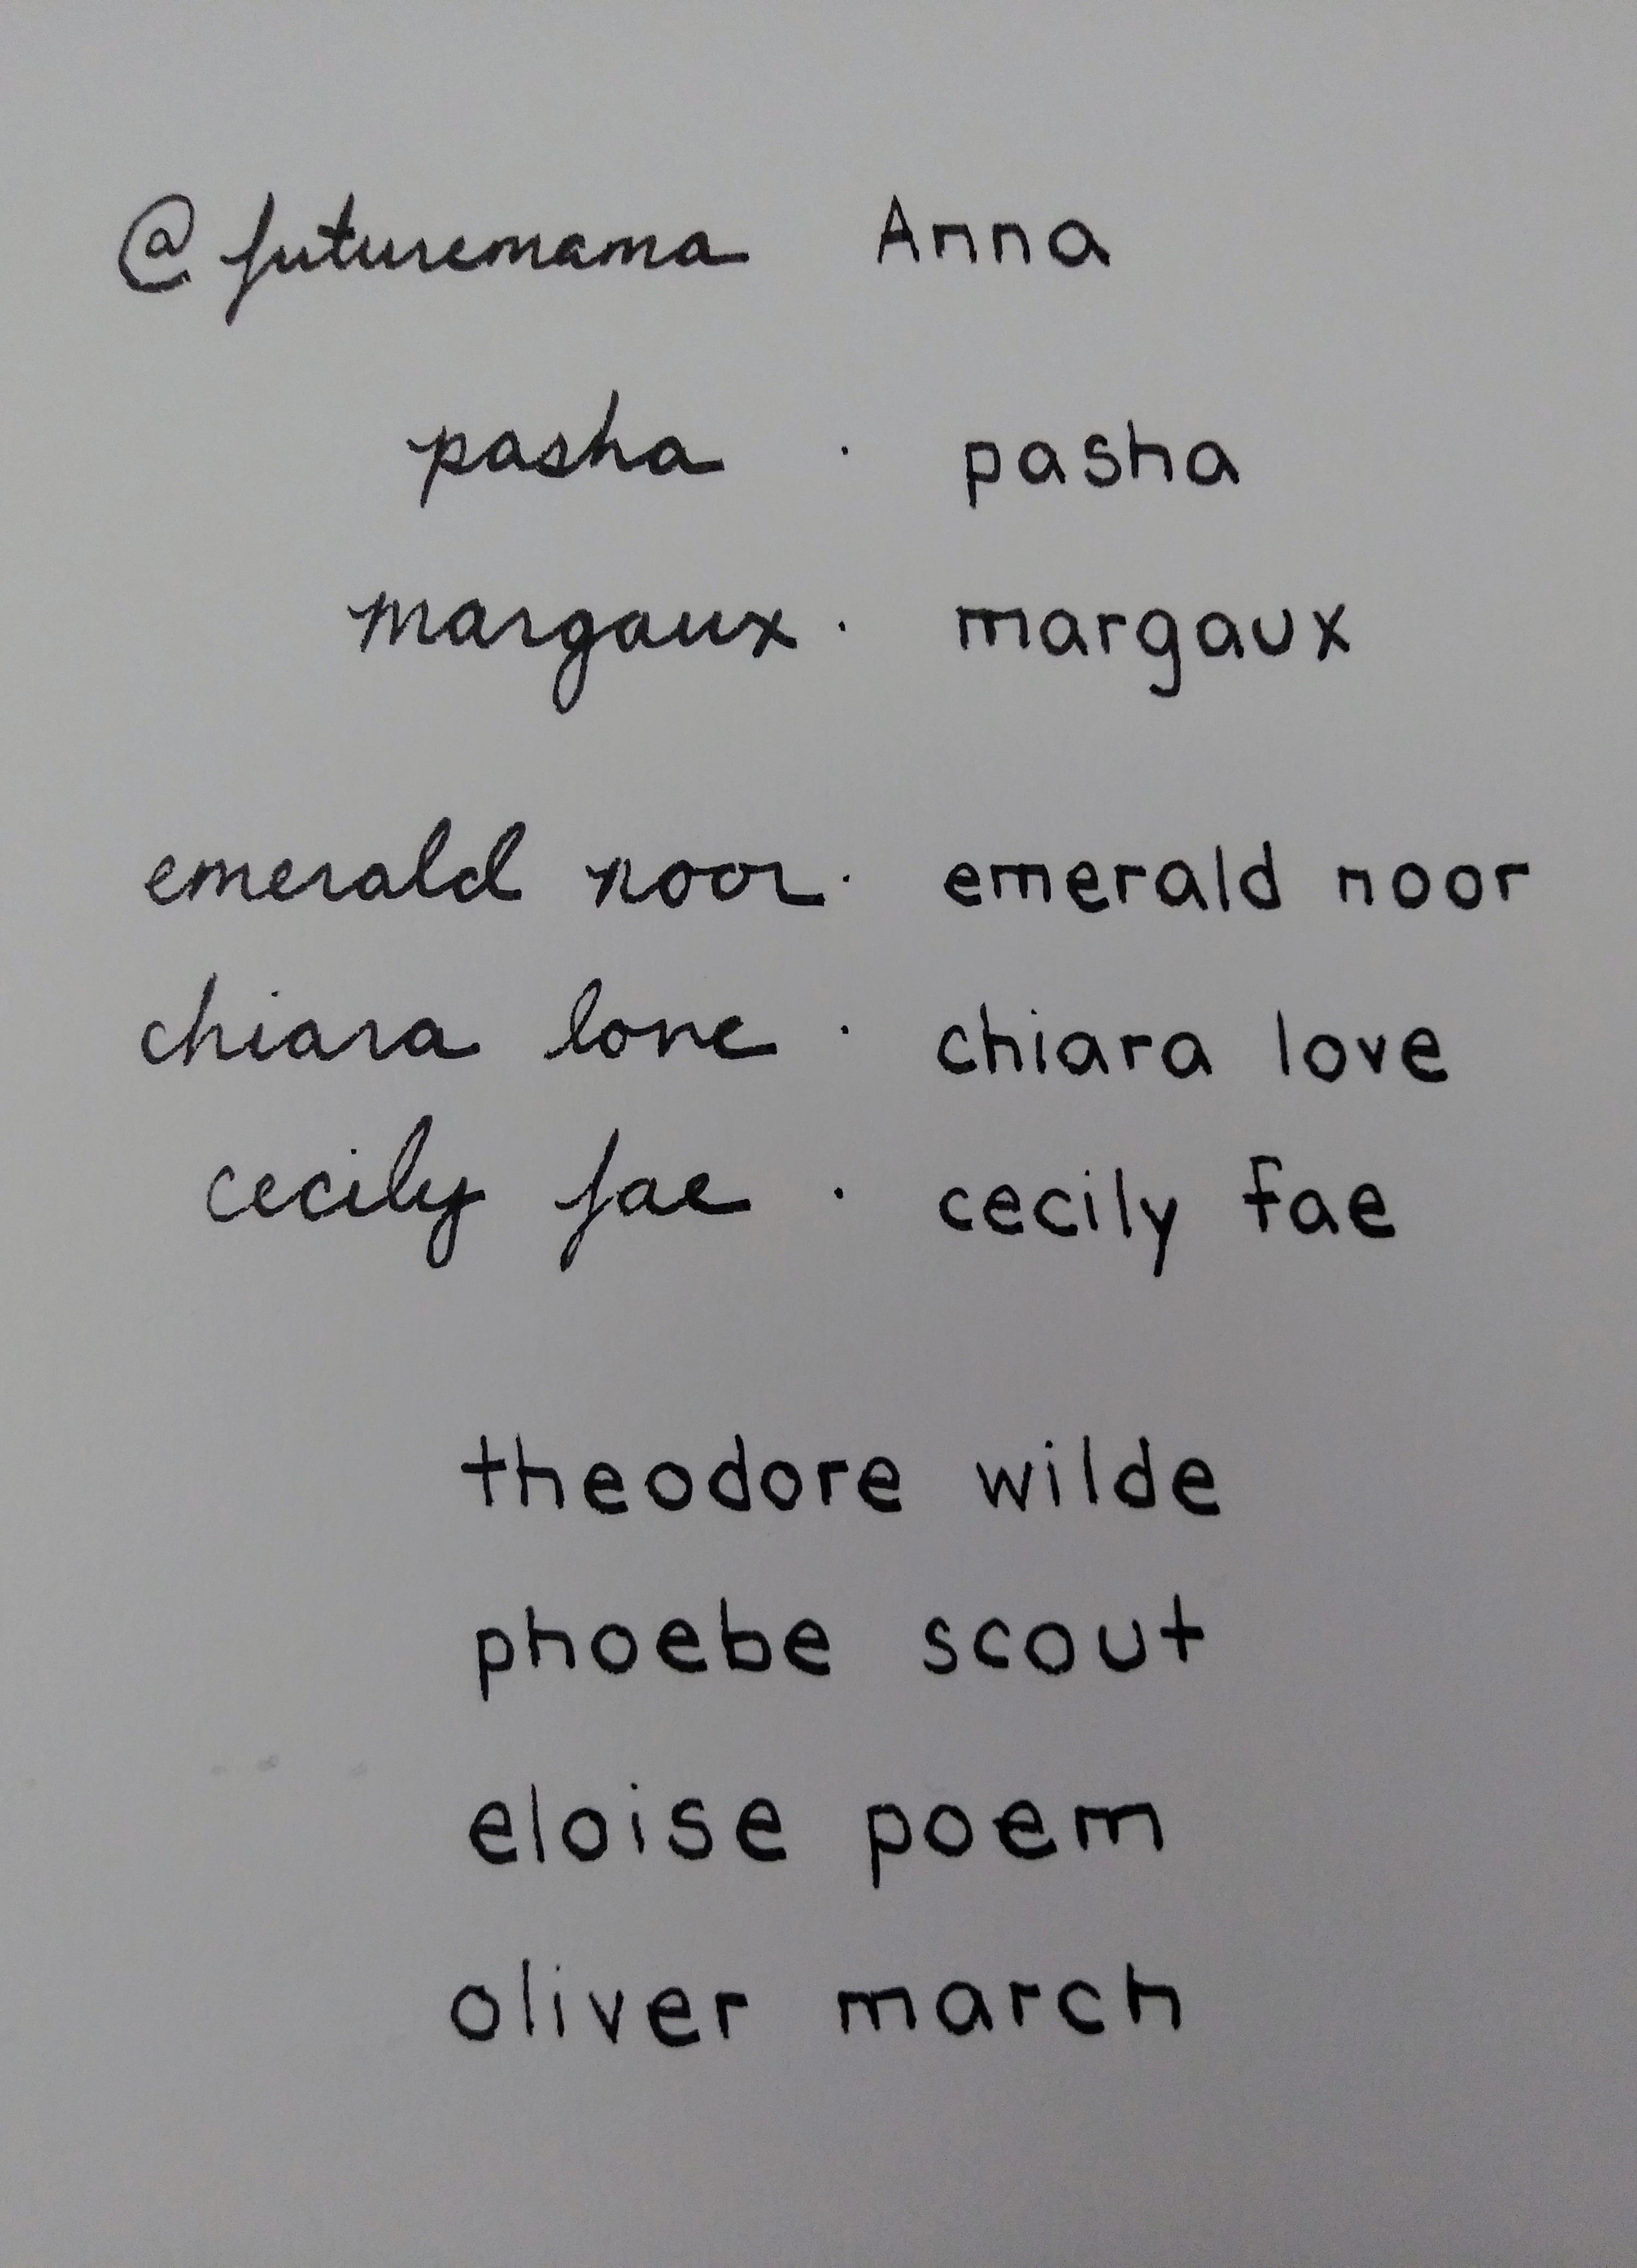 @futuremama Anna
pasha · pasha
margaux · margaux
emerald noor · emerald noor
chiara love · chiara love
cecily fae · cecily fae
theodore wilde
phoebe scout
eloise poem
oliver march